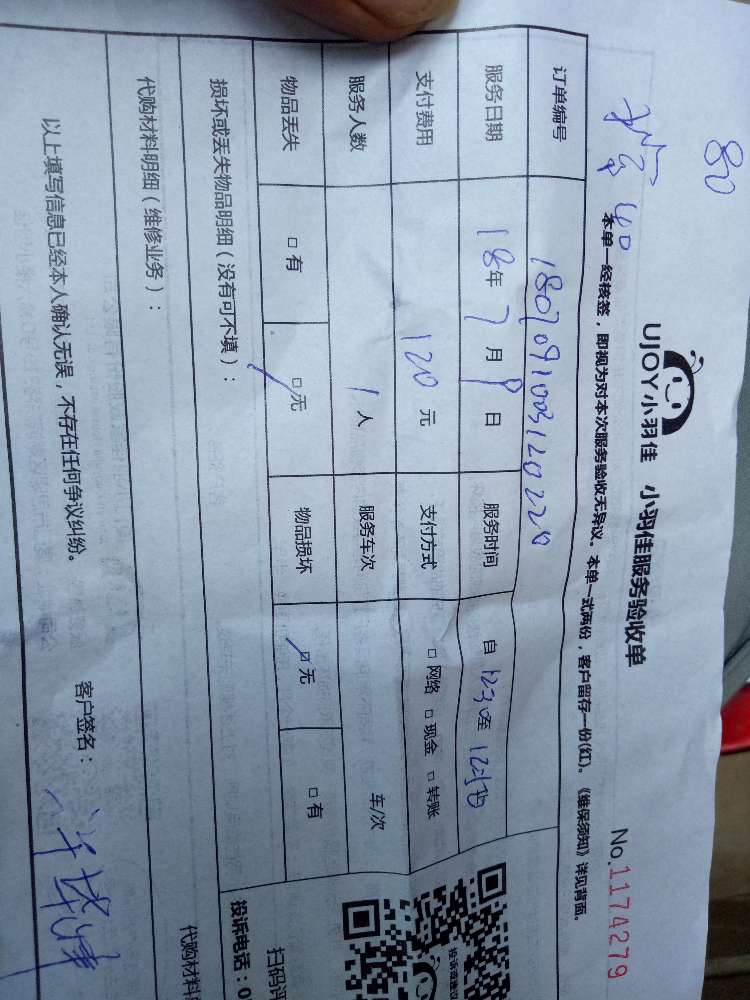 80
40
UJOY小羽佳 小羽佳服务验收单
No.1174279
本单一经核签，即视为对本次服务验收无异议。本单一式两份，客户留存一份(红)。《维保须知》详见背面。
订单编号 1807091003120220
服务日期 18年7月9日 服务时间 自 12:30至
支付费用 120元 支付方式 □网络 □现金 □转账
服务人数 1人 服务车次 车/次
物品丢失 □有 □无 物品损坏 □无 □有
损坏或丢失物品明细（没有可不填）：
代购材料明细（维修业务）： 代购材料
以上填写信息已经本人确认无误，不存在任何争议纠纷。 客户签名：
扫码评
投诉电话：0